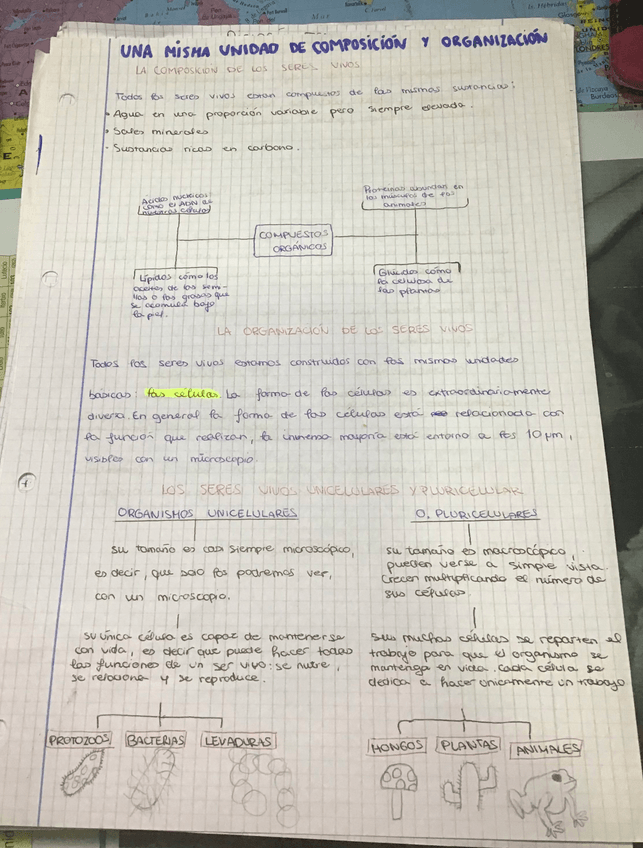 UNA MISMA UNIDAD DE COMPOSICIÓN Y ORGANIZACIÓN
LA COMPOSICIÓN DE LOS SERES VIVOS
Todos los seres vivos estan compuestos de las mismas sustancias:
• Agua en una proporción variable pero siempre elevada.
• Sales minerales
- Sustancias ricas en carbono.
Acidos nucleicos
como el ADN de
nuestras células
Proteinas abundan en
los músculos de los
animales
COMPUESTOS
ORGÁNICOS
Lípidos cómo los
aceites de las semi-
llas o las grasas que
se acomula bajo
la piel.
Glucidos cómo
la celulosa de
las plantas
LA ORGANIZACIÓN DE LOS SERES VIVOS
Todos los seres vivos estamos construidos con las mismas unidades
básicas: las células. La forma de las células es extraordinariamente
diversa. En general la forma de las células está relacionada con
la función que realizan, la inmensa mayoría está entorno a los 10 µm,
visibles con un microscopio.
LOS SERES VIVOS UNICELULARES Y PLURICELULAR
ORGANISMOS UNICELULARES
su tamaño es casi siempre microscópico,
es decir, que solo los podremos ver,
con un microscopio.
su única célula es capaz de mantenerse
con vida, es decir que puede hacer todas
las funciones de un ser vivo: se nutre,
se relaciona y se reproduce.
PROTOZOOS BACTERIAS LEVADURAS
O. PLURICELULARES
su tamaño es macroscópico,
pueden verse a simple vista.
Crecen multiplicando el número de
sus células.
Sus muchas células se reparten el
trabajo para que el organismo se
mantenga en vida. Cada célula se
dedica a hacer unicamente un trabajo
HONGOS PLANTAS ANIMALES